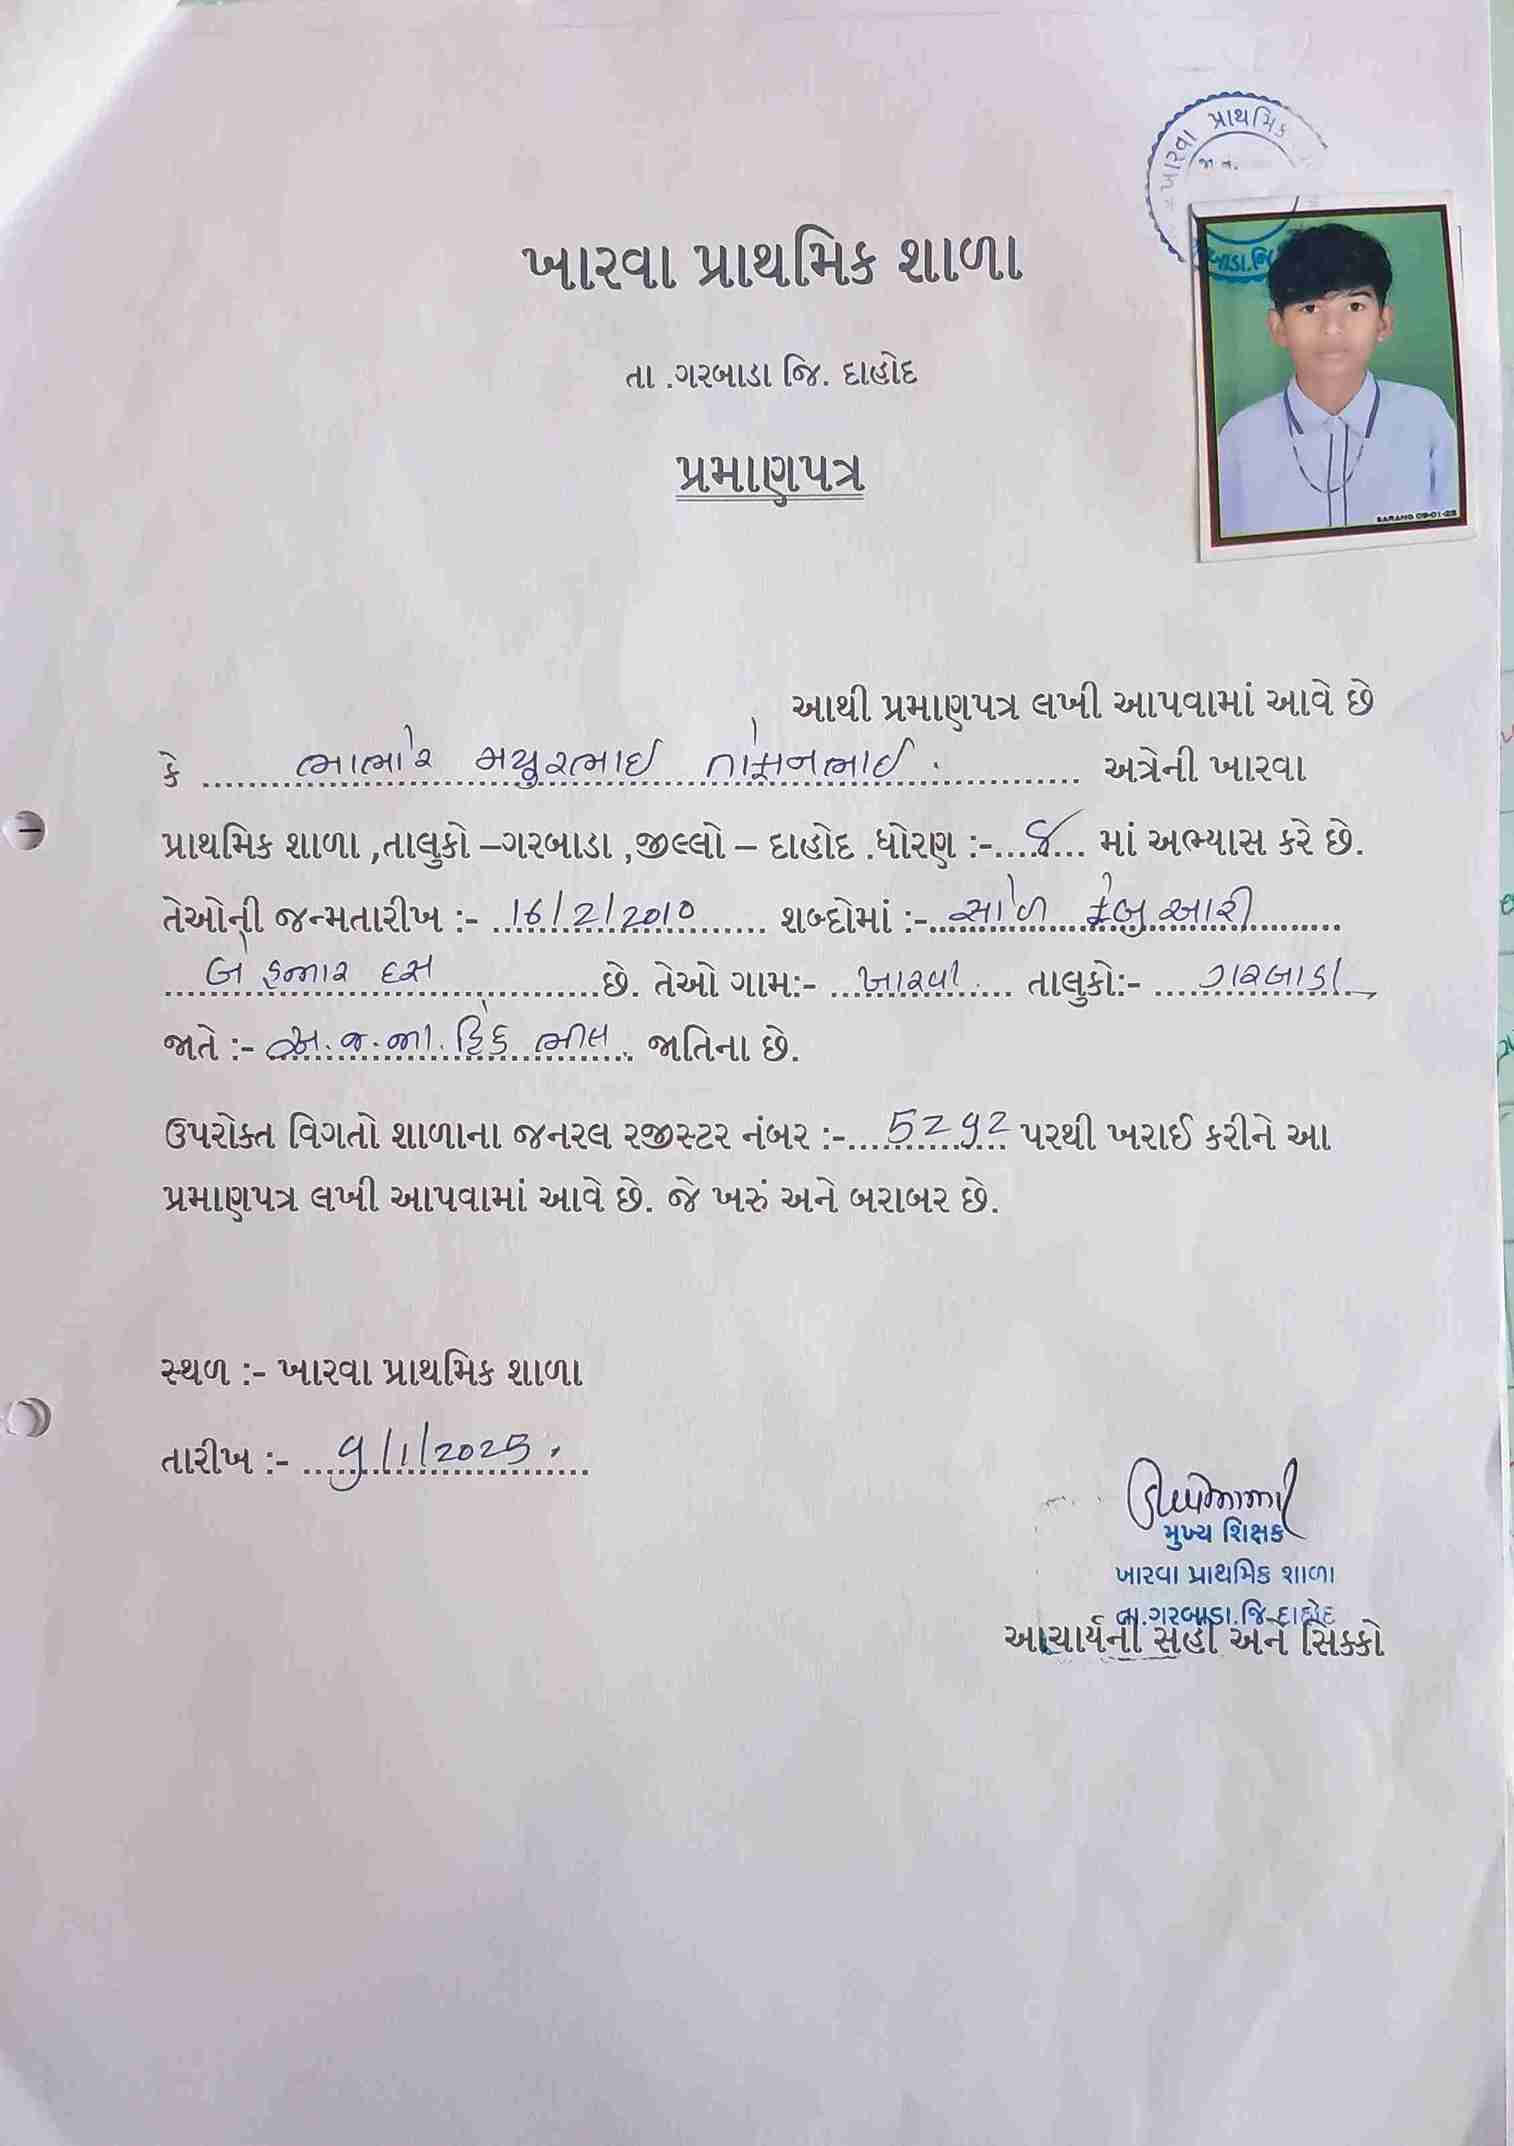 ખારવા પ્રાથમિક
ખારવા પ્રાથમિક શાળા
તા .ગરબાડા જિ. દાહોદ
પ્રમાણપત્ર
SARANG 09-01-25
આથી પ્રમાણપત્ર લખી આપવામાં આવે છે
કે ભાભોર મયુરભાઈ તોફાનભાઈ અત્રેની ખારવા
પ્રાથમિક શાળા ,તાલુકો –ગરબાડા ,જીલ્લો – દાહોદ .ધોરણ :- માં અભ્યાસ કરે છે.
તેઓની જન્મતારીખ :- 16/2/2010 શબ્દોમાં :- સોળ ફેબ્રુઆરી
બે હજાર દસ છે. તેઓ ગામ:- ખારવા તાલુકો:- ગરબાડા
જાતે :- અ.જ.જા. હિંદુ ભીલ જાતિના છે.
ઉપરોક્ત વિગતો શાળાના જનરલ રજીસ્ટર નંબર :- 5292 પરથી ખરાઈ કરીને આ
પ્રમાણપત્ર લખી આપવામાં આવે છે. જે ખરું અને બરાબર છે.
સ્થળ :- ખારવા પ્રાથમિક શાળા
તારીખ :- 9/1/2025
મુખ્ય શિક્ષક
ખારવા પ્રાથમિક શાળા
તા.ગરબાડા.જિ.દાહોદ
આચાર્યની સહી અને સિક્કો